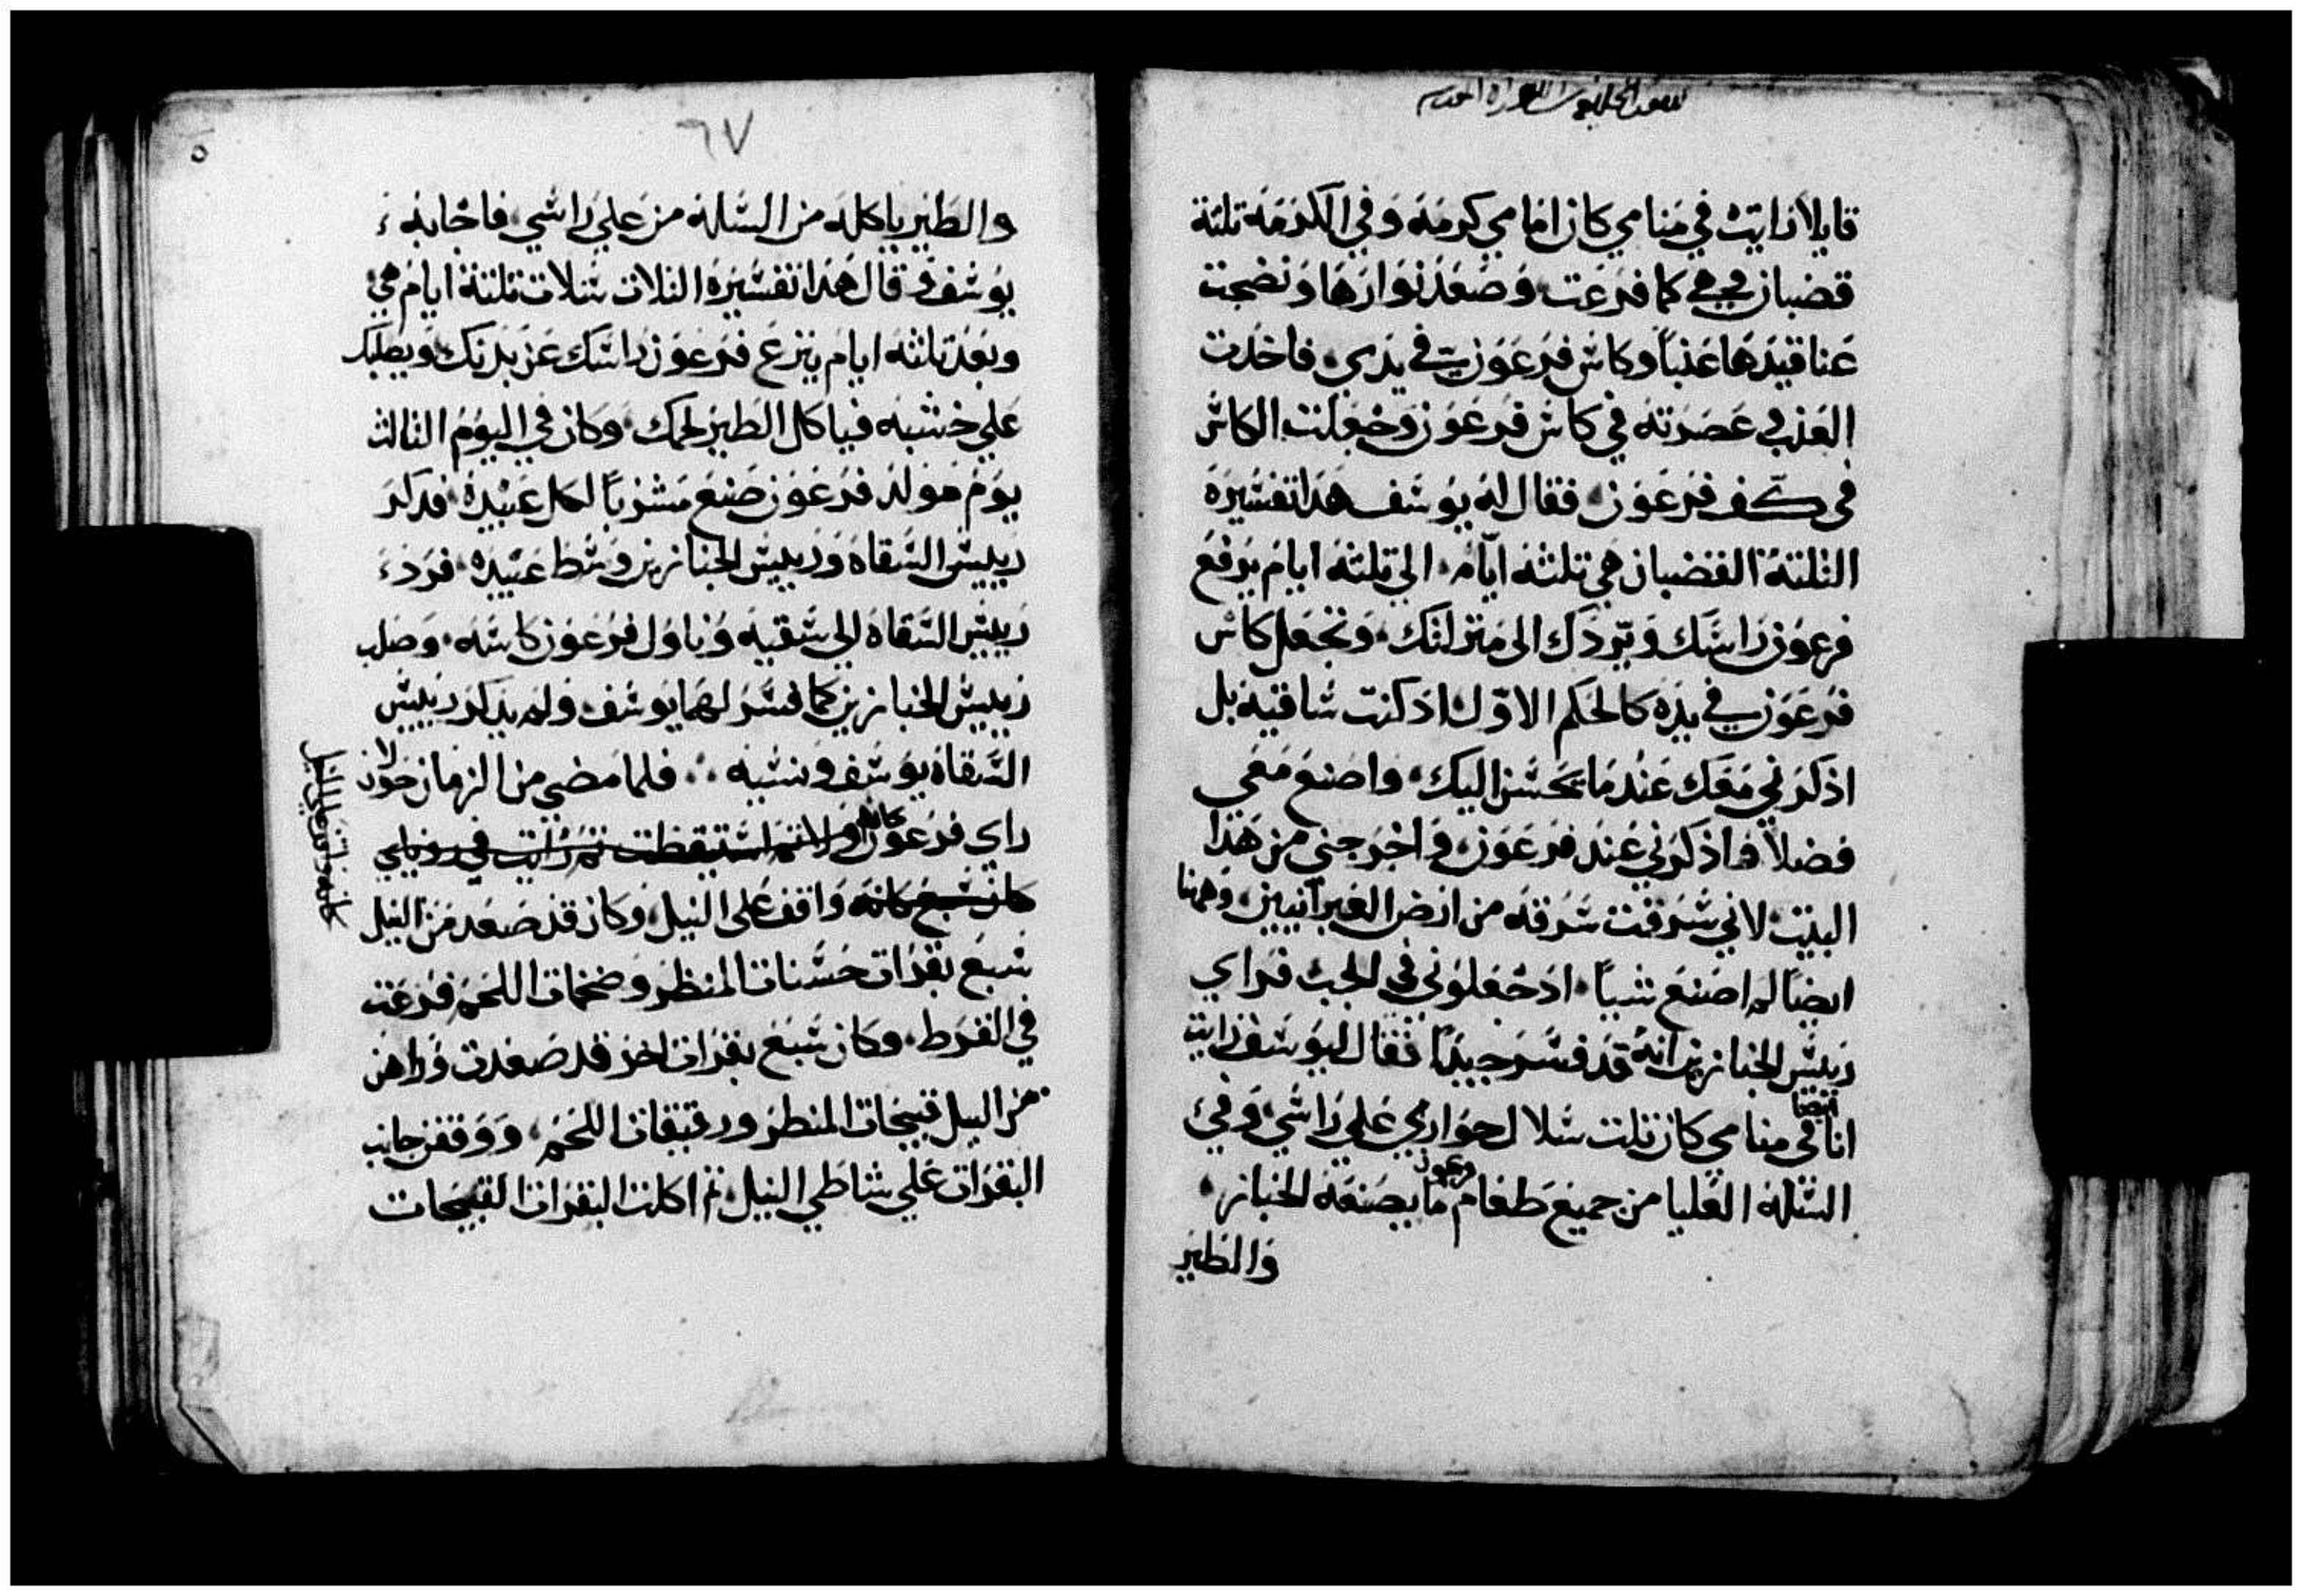 قايلا رايت في منامي كان امامي كرمه وفي الكرمه تلتة
قضبان في هي كما فرعت وصعد نوارها ونضجت
عناقيدها عنباً وكاس فرعون في يدي فاخدت
العنب عصرته في كاس فرعون وجعلت الكاس
في كف فرعون فقال له يوسف هدا تفسيره
التلتة القضبان هي تلتة ايام الي تلتة ايام يرفع
فرعون راسك ويردك الى منزلتك وتجعل كاس
فرعون في يده كالحكم الاول اد كنت ساقيه بل
ادكرني معك عند ما يحسن اليك واصنع معي
فضلاً فادكرني عند فرعون واخرجني من هدا
البيت لاني سرقت سرقه من ارض العبرانيين وههنا
ايضا لم اصنع شياً اد جعلوني في الجب فراي
رييس الخبازين انه قد فسر جيداً فقال ليوسف رايت
انا ايضا في منامي كان تلت سلال حواري علي راسي وفي
السله العليا من جميع طعام فرعون ما يصنعه الخباز
والطير
٦٧
والطير ياكله من السله من علي راسي فاجابه
يوسف وقال هدا تفسيره التلات سلات تلتة ايام هي
وبعد تلتة ايام ينزع فرعون راسك عن بدنك ويصلبك
علي خشبه فياكل الطير لحمك وكان في اليوم التالت
يوم مولد فرعون صنع مشرباً لكل عبيده فدكر
رييس السقاه ورييس الخبازين وسط عبيده فرد
رييس السقاه الي سقيه وناول فرعون كاسه وصلب
رييس الخبازين كما فسر لهما يوسف ولم يدكر رييس
السقاه يوسف ونسيه فلما مضي من الزمان حولان
راي فرعون كانه اولا ثم استيقظت ثم رايت في روياي
كان سبع كانه واقف على النيل وكان قد صعد من النيل
سبع بقرات حسنات المنظر وضخمات اللحم فرعت
في القرط وكان سبع بقرات اخر قد صعدت وراهن
من النيل قبيحات المنظر ورقيقات اللحم ووقفن جانب
البقرات علي شاطي النيل ثم اكلت البقرات القبيحات
كانه واقف علي النيل